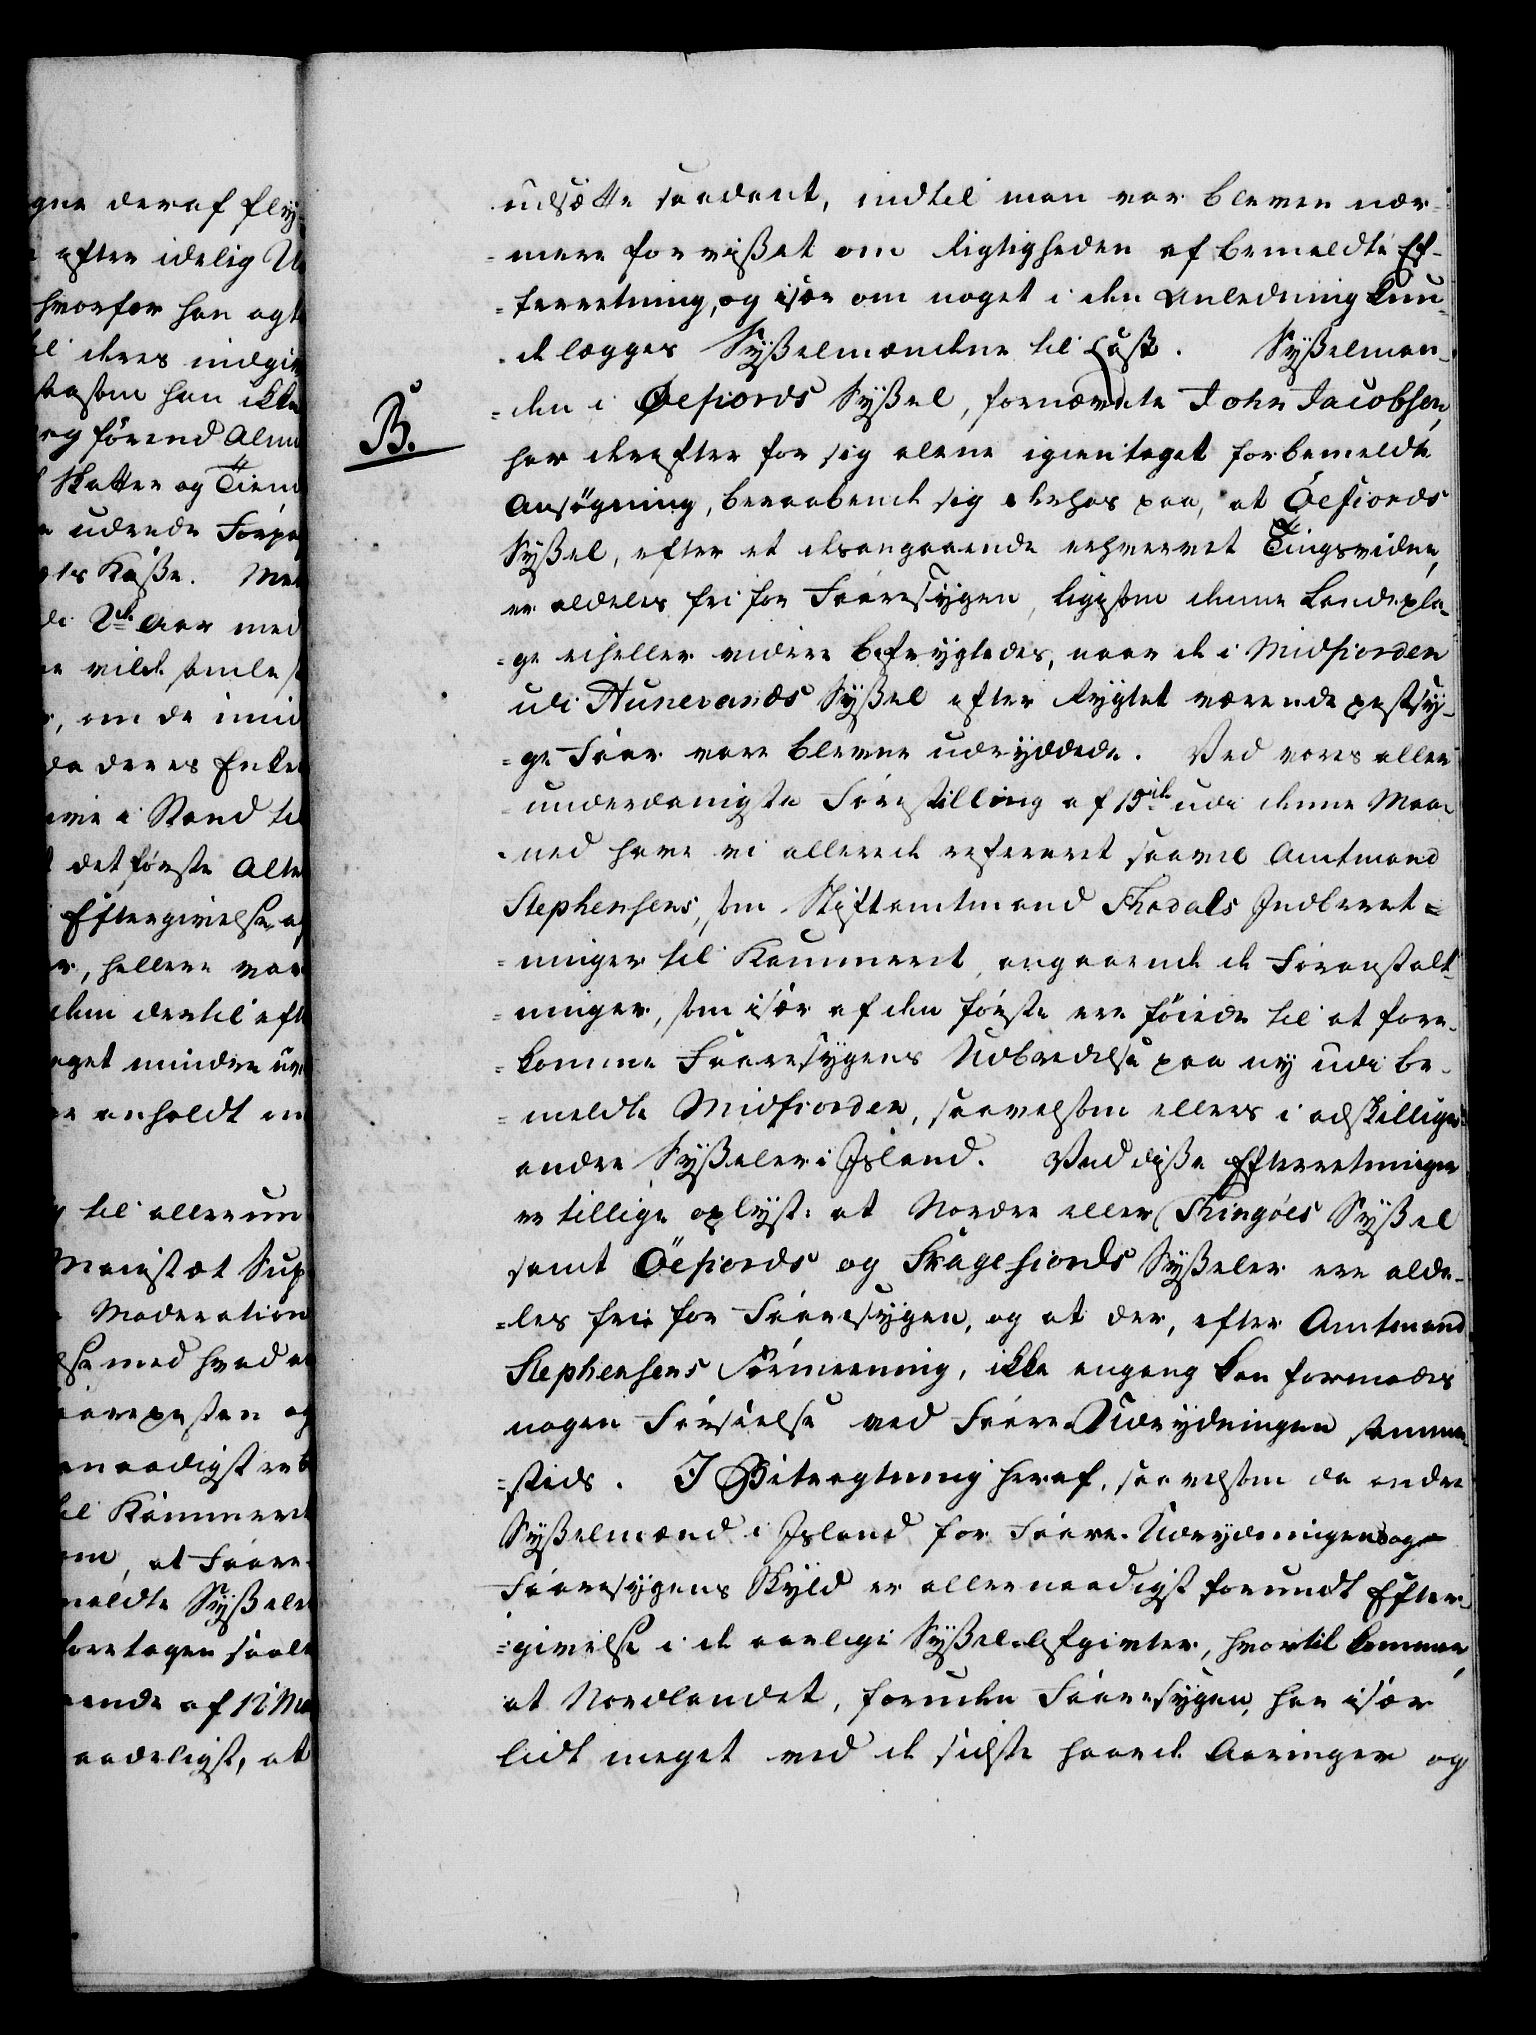 gne deraf fly
efter idelig U
hvorfor han agt
il deres indgiv
saasom han ikke
og förend Alm
Skatter og Tien
udrede Forpa
ets Kaße. Men
de 2de Aar med
vilde samles
, om de imid
da deres Enke
være i Stand til
det förste Alte
Eftergivelse af
r, hellere var
dem dertil eft
noget mindre
anholdt om
til allerun
Maiestæt Sup
Moderation
lse med hvad
aarepesten og
ernaadigst
til Kammeret
om, at Faare-
meldte Sÿßeler
foretagen saale
ende af 12 Ma
aadeligst, at
udsætte saadant, indtil man var bleven nær-
=mere forvißet om Rigtigheden af bemeldte Ef-
=terretning, og især om noget i den Anledning kun-
de lægges Sÿßelmændene til Last. Sÿßelman-
B.
=den i Øefiords Sÿßel, fornævnte John Jacobsen,
har derefter for sig alene igientaget forbemeldte
Ansögning, beraabende sig derhos paa, at Öefiords
Sÿßel, efter et desangaaende erhvervet Tingsvidne,
er aldeles fri for Faaresÿgen, ligesom denne Landepla-
=ge eiheller videre befrygtedes, naar de i Midfiorden
udi Hunevands Sÿßel efter Rygtet værende pestsy-
=ge Faar vare blevne udryddede. Ved vores aller
underdanigste Forestilling af 15de udi denne Maa-
ned have vi allerede refereret saavel Amtmand
Stephensens, som Stiftamtmand Thodals Indberet=
=ninger til Kammeret, angaaende de Foranstalt-
=ninger, som især af den förste ere föiede til at fore-
=komme Faaresÿgens Udbredelse paa ny udi be-
=meldte Midfiorden, saavelsom ellers i adskillige
andre Sÿßeler i Island. Ved diße Efterretninger
er tillige oplyst: at Nordre eller Thingöes Sÿßel
samt Öefiords og Skagefiords Sÿßeler ere alde-
=les frie for Faaresygen, og at der, efter Amtmand
Stephensens Formeening, ikke engang kan formodes
nogen Forsielse ved Faare-Udrydningen sammes
=steds. I Betragtning heraf, saavelsom da andre
Sÿßelmænd i Island for Faare-Udrydningens og
Faaresygens Skyld er allernaadigst forundt Efter-
=givelse i de aarlige Sÿßel-Afgivter, hvortil kommer,
at Nordlandet, foruden Faaresygen, har især
lidt meget ved de sidste haarde Aaringer og